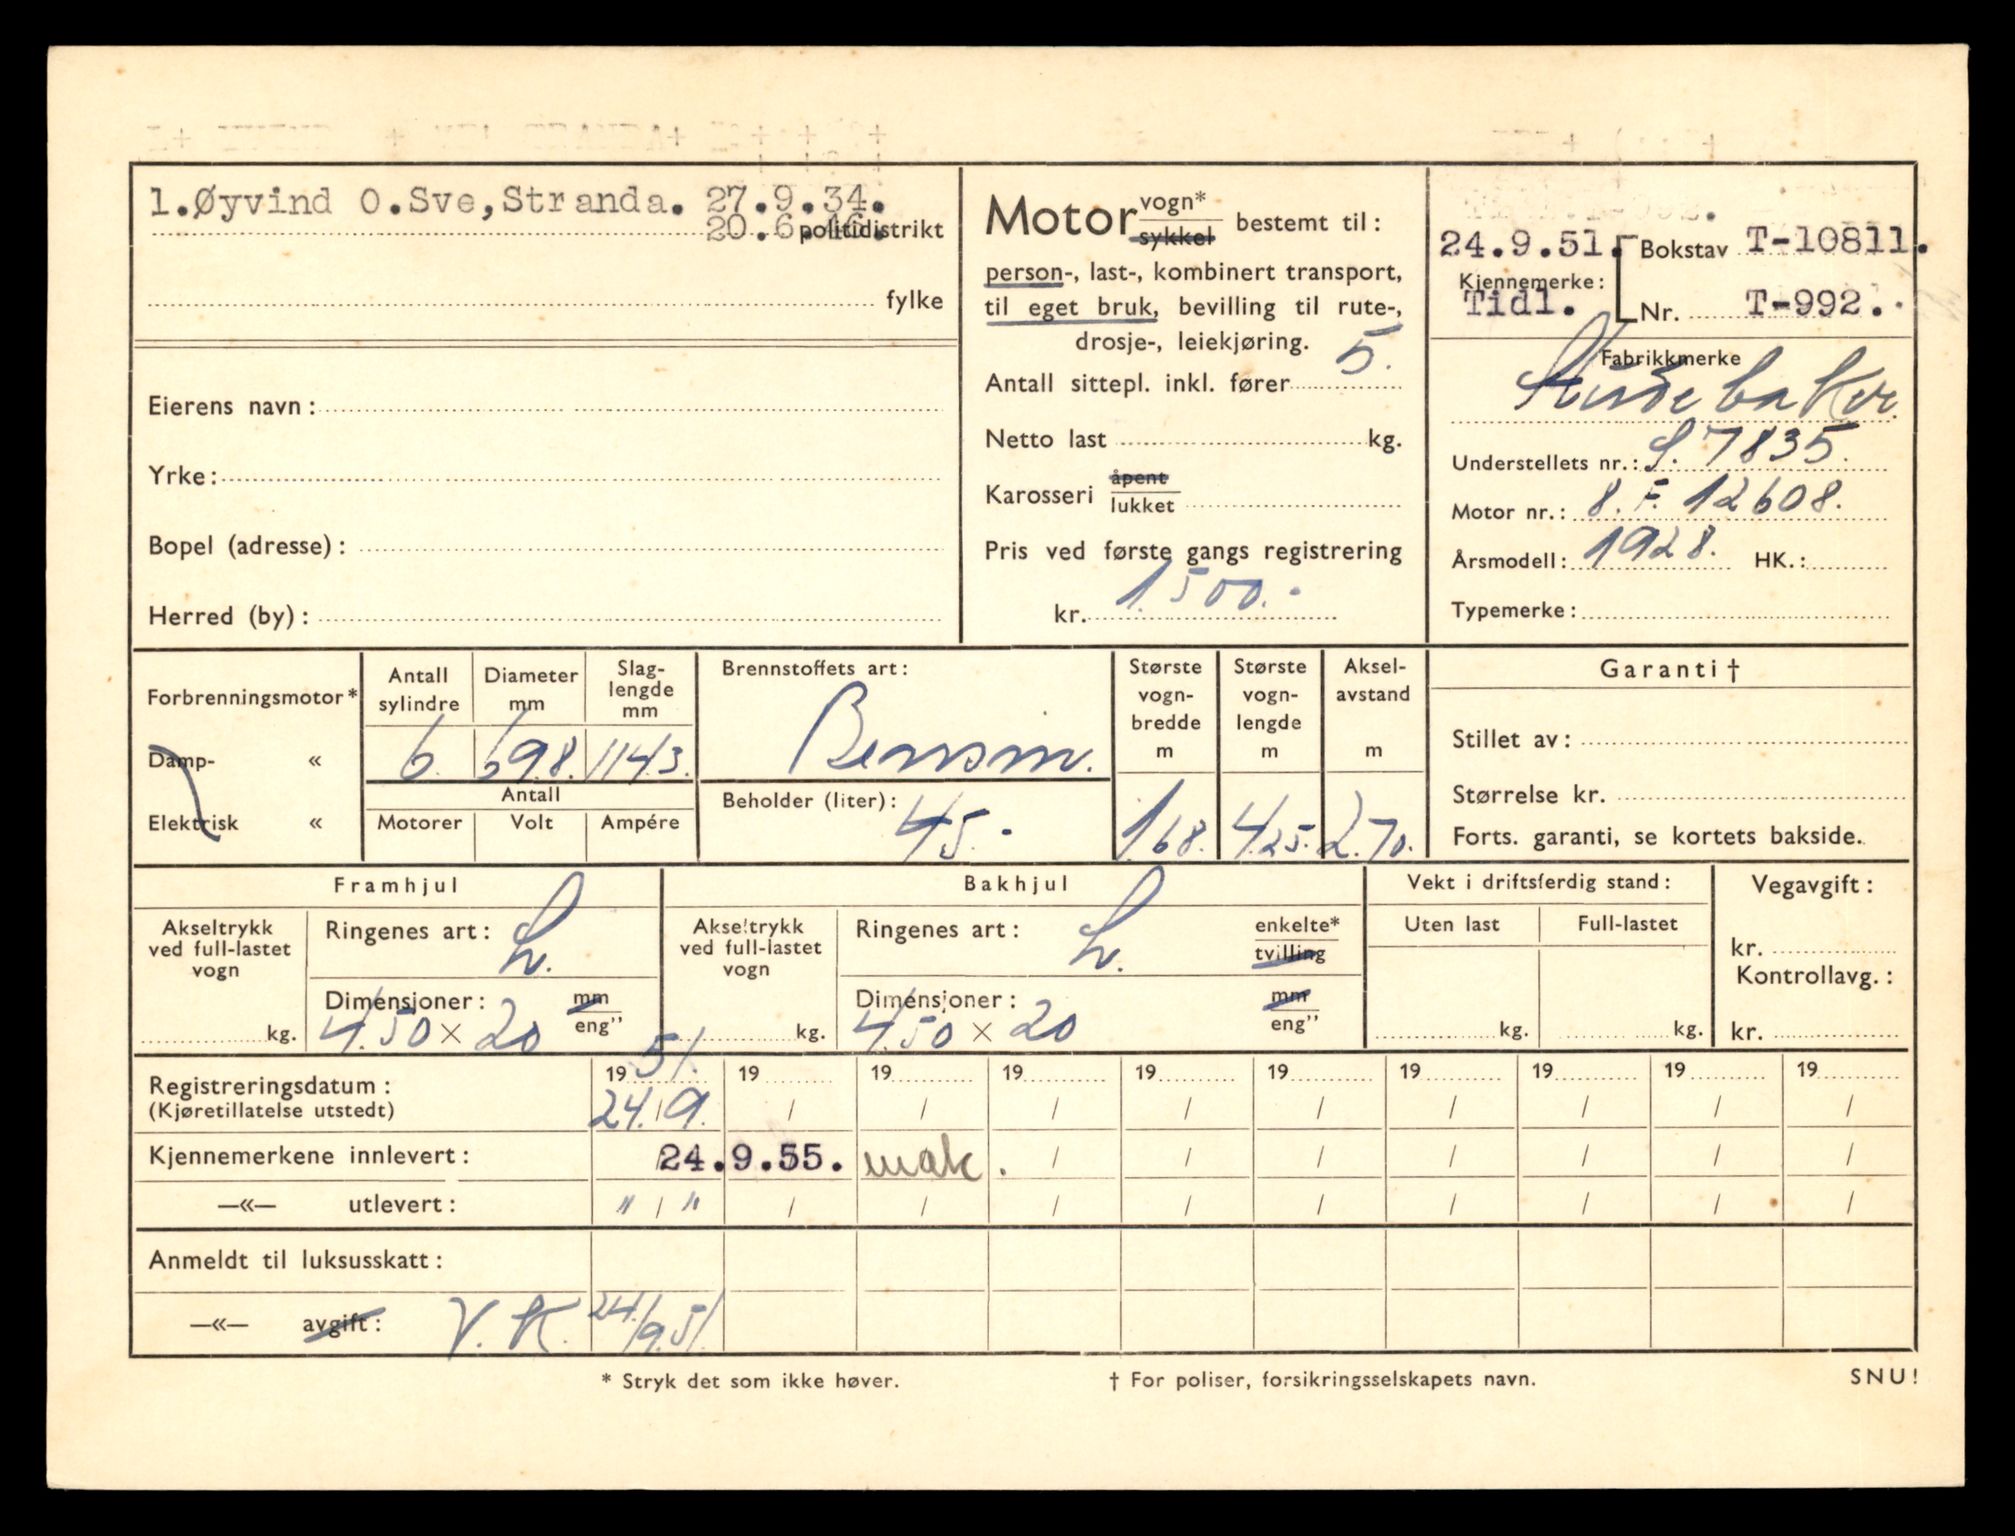 1.Øyvind O.Sve,Stranda. 27.9.34.
20.6.46. politidistrikt
fylke
Eierens navn:
Yrke:
Bopel (adresse):
Herred (by):
Motor vogn*
sykkel bestemt til:
person-, last-, kombinert transport,
til eget bruk, bevilling til rute-,
drosje-, leiekjøring.
Antall sittepl. inkl. fører 5.
Netto last kg.
Karosseri åpent
lukket
Pris ved første gangs registrering
kr. 1.500.-
24.9.51. Bokstav T-10811.
Kjennemerke:
Tidl. Nr. T-992.
Fabrikkmerke
Studebaker
Understellets nr.: S. 7835.
Motor nr.: 8. F. 12608.
Årsmodell: 1928. HK.:
Typemerke:
Forbrenningsmotor*
Damp- «
Elektrisk «
Antall sylindre 6.
Diameter mm 69.8.
Slag-lengde mm 114.3.
Antall
Motorer Volt Ampére
Brennstoffets art:
Bensin.
Beholder (liter): 45.-
Største vogn-bredde m 1.68.
Største vogn-lengde m 4.25.
Aksel-avstand m 2.70.
Garanti †
Stillet av:
Størrelse kr.
Forts. garanti, se kortets bakside.
Framhjul
Akseltrykk ved full-lastet vogn
kg.
Ringenes art: L.
Dimensjoner: mm
4.50 × 20 eng"
Bakhjul
Akseltrykk ved full-lastet vogn
kg.
Ringenes art: L. enkelte*
tvilling
Dimensjoner: mm
4.50 × 20 eng"
Vekt i driftsferdig stand:
Uten last Full-lastet
kg. kg.
Vegavgift:
kr.
Kontrollavg.:
kr.
19 51. 19 19 19 19 19 19 19 19 19
Registreringsdatum:
(Kjøretillatelse utstedt) 24./9. / / / / / / / / /
Kjennemerkene innlevert: 24.9.55. mak. / / / / / / /
—«— utlevert: " / " / / / / / / / / /
Anmeldt til luksusskatt:
—«— avgift: V. K. 24/9.51.
* Stryk det som ikke høver. † For poliser, forsikringsselskapets navn. SNU!